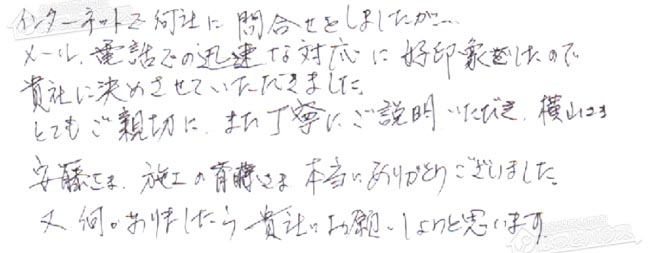 インターネットで何社に問合せをしましたが…
メール、電話での迅速な対応に好印象でしたので
貴社に決めさせていただきました。
とてもご親切に、また丁寧にご説明いただき、横山さま
安藤さま、施工の斉藤さま本当にありがとうございました。
又何かありましたら貴社にお願いしようと思います。